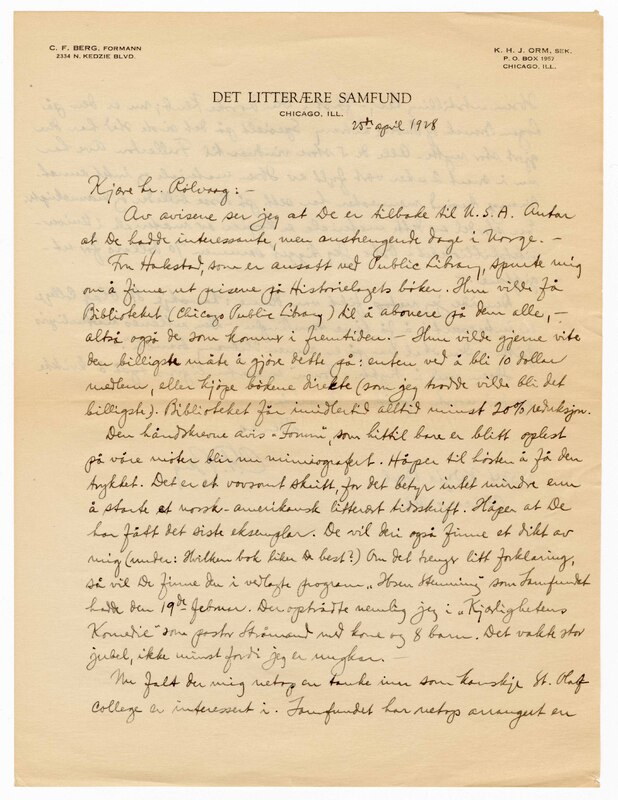 C. F. BERG, FORMANN
2334 N. KEDZIE BLVD.
K. H. J. ORM, SEK.
P. O. BOX 1957
CHICAGO, ILL.
DET LITTERÆRE SAMFUND
CHICAGO, ILL.
25de april 1928
Kjære hr. Rölvaag: –
Av avisene ser jeg at De er tilbake til U.S.A. Antar
at De hadde interessante, men anstrengende dage i Norge. –
Frk Hakestad, som er ansatt ved Public Library, spurte mig
om å finne ut prisene på Historielagets böker. Hun vilde få
Biblioteket (Chicago Public Library) til å abonere på dem alle, –
altså også de som kommer i fremtiden. – Hun vilde gjerne vite
den billigste måte å gjöre dette på: enten ved å bli 10 dollar
medlem, eller kjöpe bökene direkte (som jeg trodde vilde bli det
billigste). Biblioteket får imidlertid alltid minst 20% reduksjon.
Den håndskrevne avis som hittil bare er blitt oplest
på våre möter blir nu mimiografert. Håper til hösten å få den
trykket. Det er et vovsomt skritt, for det betyr intet mindre enn
å starte et norsk-amerikansk litterært tidsskrift. Håper at De
har fått det siste eksemplar. De vil deri også finne et dikt av
mig (under: Hvilken bok liker De best?) Om det trenger litt forklaring,
så vil De finne den i vedlagte program „Ibsen Stemning" som Samfundet
hadde den 19de februar. Der optrådte nemlig jeg i „Kjærlighetens
Komedie" som pastor Stråmand med kone og 8 barn. Det vakte stor
jubel, ikke minst fordi jeg er ungkar. –
Nu falt der mig netop en tanke inn som kanskje St. Olaf
College er interessert i. Samfundet har netop arrangert en